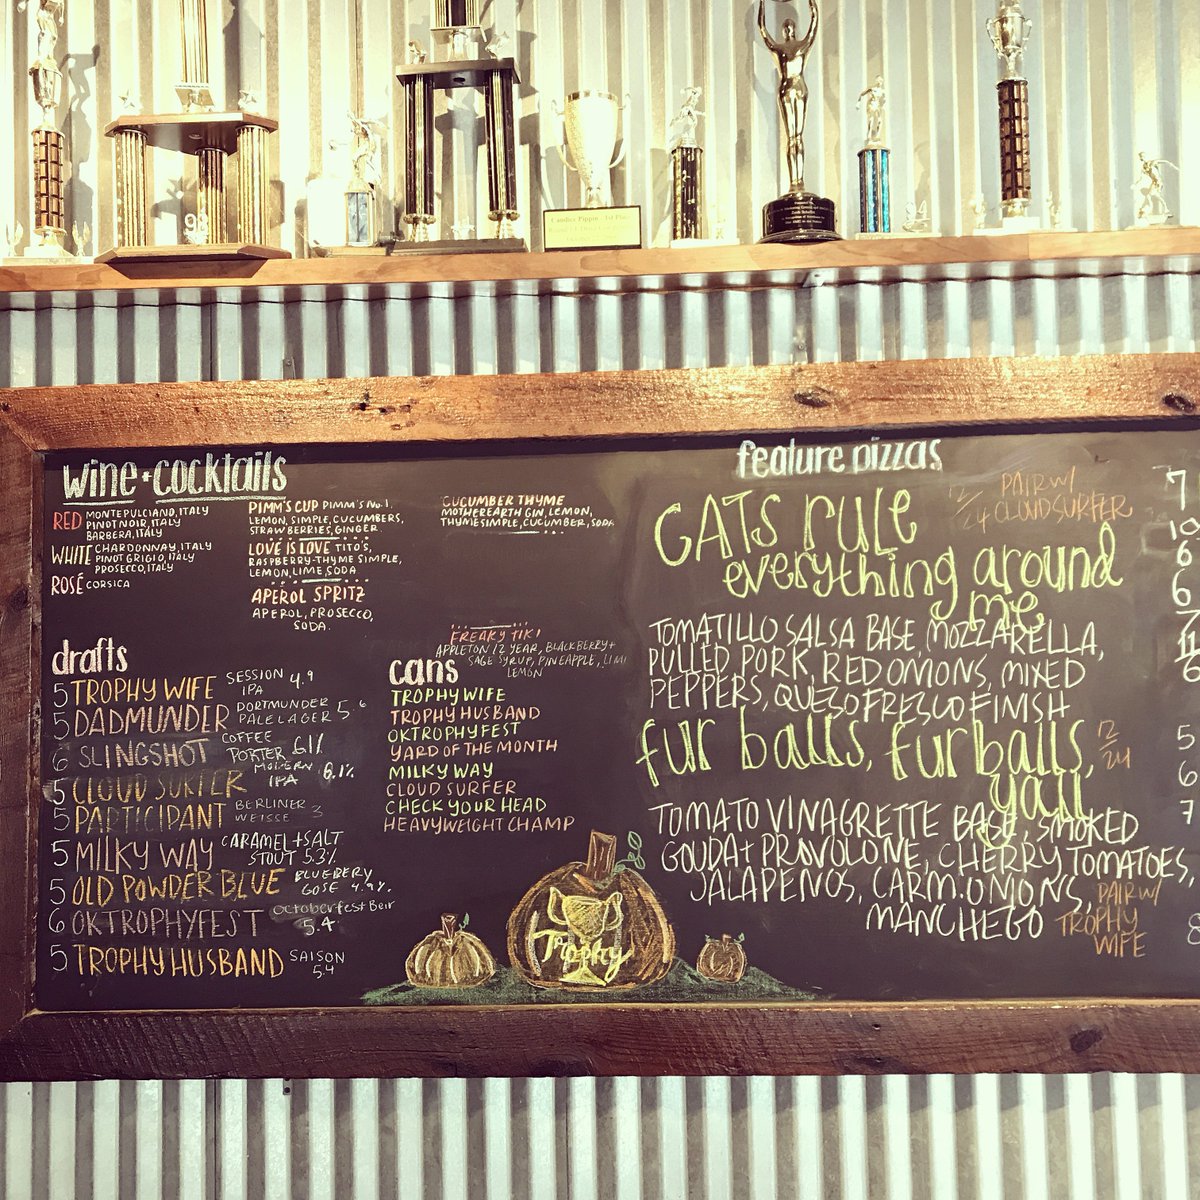 98
Candice Pippin - 1st Place
wine + cocktails
RED MONTEPULCIANO, ITALY
PINOT NOIR, ITALY
BARBERA, ITALY
WHITE CHARDONNAY, ITALY
PINOT GRIGIO, ITALY
PROSECCO, ITALY
ROSÉ CORSICA
PIMM'S CUP PIMM'S No.1,
LEMON, SIMPLE, CUCUMBERS,
STRAWBERRIES, GINGER
LOVE IS LOVE TITO'S,
RASPBERRY-THYME SIMPLE,
LEMON, LIME, SODA
APEROL SPRITZ
APEROL, PROSECCO,
SODA.
CUCUMBER THYME
MOTHER EARTH GIN, LEMON,
THYME SIMPLE, CUCUMBER, SODA
FREAKY TIKI
APPLETON 12 YEAR, BLACKBERRY +
SAGE SYRUP, PINEAPPLE, LIME
LEMON
drafts
5 TROPHY WIFE SESSION IPA 4.9
5 DADMUNDER DORTMUNDER PALE LAGER 5.6
6 SLINGSHOT COFFEE PORTER 6.1%
5 CLOUD SURFER MODERN IPA 6.1%
5 PARTICIPANT BERLINER WEISSE 3
5 MILKY WAY CARAMEL + SALT STOUT 5.3%
5 OLD POWDER BLUE BLUEBERY GOSE 4.9%.
6 OKTROPHYFEST octoberfest Beir 5.4
5 TROPHY HUSBAND SAISON 5.4
cans
TROPHY WIFE
TROPHY HUSBAND
OKTROPHYFEST
YARD OF THE MONTH
MILKY WAY
CLOUD SURFER
CHECK YOUR HEAD
HEAVYWEIGHT CHAMP
Trophy
feature pizzas
CATS rule
everything around
me
12/24
PAIR W/
CLOUDSURFER
TOMATILLO SALSA BASE, MOZZARELLA,
PULLED PORK, RED ONIONS, MIXED
PEPPERS, QUESO FRESCO FINISH
fur balls, fur balls,
yall
12/24
TOMATO VINAGRETTE BASE, SMOKED
GOUDA + PROVOLONE, CHERRY TOMATOES,
JALAPENOS, CARM. ONIONS,
MANCHEGO
PAIR W/
TROPHY
WIFE
7
10
6
6
6
5
6
7
8